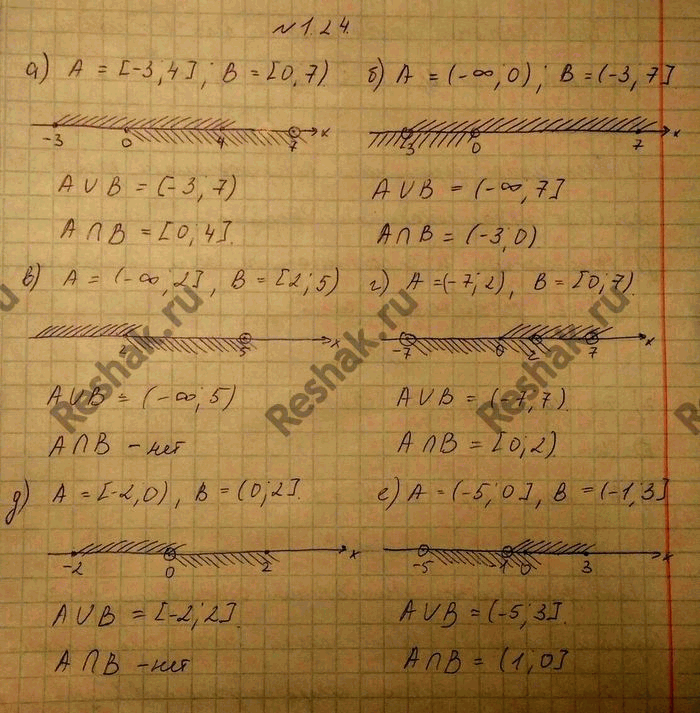 № 1.24.
а) A = [-3; 4]; B = [0; 7)
-3 0 4 7 x
A ∪ B = (-3; 7)
A ∩ B = [0; 4].
б) A = (-∞; 0); B = (-3; 7]
-3 0 7 x
A ∪ B = (-∞; 7]
A ∩ B = (-3; 0)
в) A = (-∞; 2], B = [2; 5)
2 5 x
A ∪ B = (-∞; 5)
A ∩ B - нет
г) A = (-7; 2), B = [0; 7).
-7 0 2 7 x
A ∪ B = (-7; 7).
A ∩ B = [0; 2)
д) A = [-2; 0), B = (0; 2].
-2 0 2 x
A ∪ B = [-2; 2].
A ∩ B - нет
е) A = (-5; 0], B = (-1; 3]
-5 -1 0 3 x
A ∪ B = (-5; 3].
A ∩ B = (1; 0]
Reshak.ru
Reshak.ru
Reshak.ru
Reshak.ru